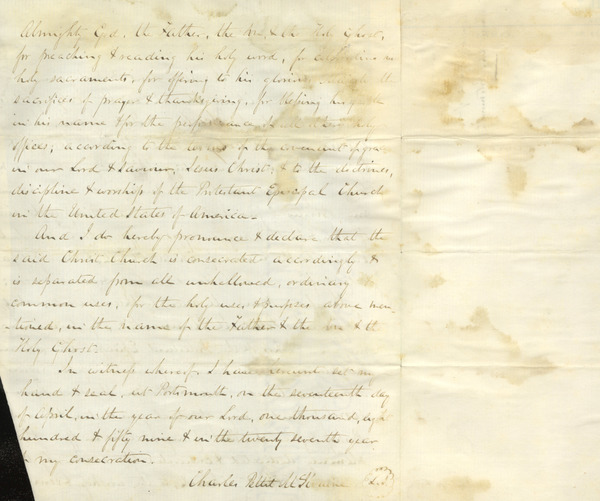 Almighty God, the Father, the Son, & the Holy Ghost,
for preaching & reading his holy word, for celebrating his
holy sacraments, for offering to his glorious the
sacrifices of prayer & thanksgiving, for blessing his people
in his name & for the performance of all other holy
offices; according to the terms of the covenant of grace
in our Lord & Saviour, Jesus Christ; & to the doctrines,
discipline & worship of the Protestant Episcopal Church
in the United States of America.—
And I do hereby pronounce & declare that the
said Christ Church is consecrated accordingly &
is separated from all unhallowed, ordinary &
common uses, for the holy uses & purposes above men-
tioned, in the name of the Father & the Son & the
Holy Ghost.
In witness whereof I have hereunto set my
hand & seal, at Portsmouth, on the seventeenth day
of April, in the year of our Lord, one thousand, eight
hundred & fifty nine & in the twenty seventh year
of my consecration.
Charles Pettit McIlvaine
L.S.